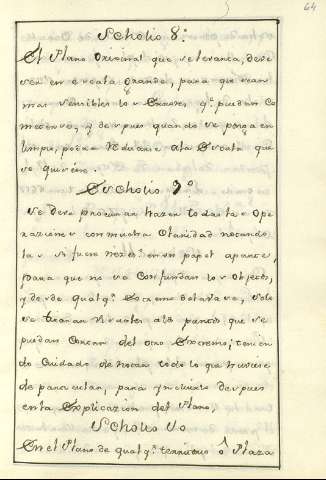 64
Scholio 8º
El Plano Original que se levanta, deve
ser en escala Grande, para que sean
mas sensibles los Errores q.º puedan Co
meterse, y despues quando se ponga en
limpio, podrá reducirse ala Escala que
se quisiere.
Escholio 9º
Se deve procurar hazer todas las Ope
raziones con mucha Claridad notando
las si fuere nezesº en un papel aparte,
para que no se Confundan los Objetos,
y desde qualqº Extremo
se tiraran visuales alas partes que se
puedan del otro Extremo; tenien
do Cuidado de notar todo lo que huviere
de particular, para incluirlo despues
en la Explicazion del Plano.
Scholio
En el Plano de qualqº terreno ô Plaza